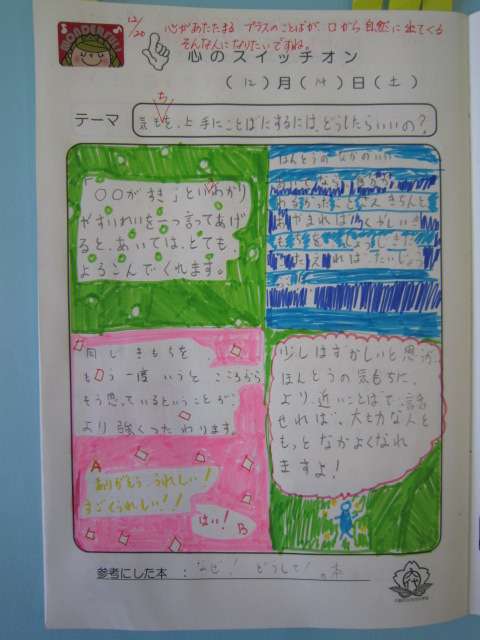 12/20
心があたたまる プラスのことばが、口から自然に出てくる
そんな人になりたいですね。
WONDERFUL!
心のスイッチオン
(12)月(14)日(土)
テーマ
ち
気もを、上手にことばにするには、どうしたらいいの?
「○○がすき」といわかり
やすいれいを一つ言ってあげ
ると、あいては、とても、
よろこんでくれます。
ほんとうの なかのいい
わるかった
きちんと
やまれば
しょうじきに
つたえれば だいじょう
同じきもちを
もう一度いうと こころから
そう思っているということが
より強くつたわります。
A
ありがとう、うれしい!
すごくうれしい!!
はい!
B
少しはずかしいと思うが
ほんとうの気もちに、
より近いことばで、話
せれば、大切な人と
もっとなかよくなれ
ますよ!
参考にした本 : なぜ!どうして!の本